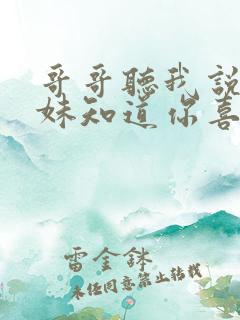 哥哥聽我說
妹知道你喜
雷金鉢
未經同意禁止轉載